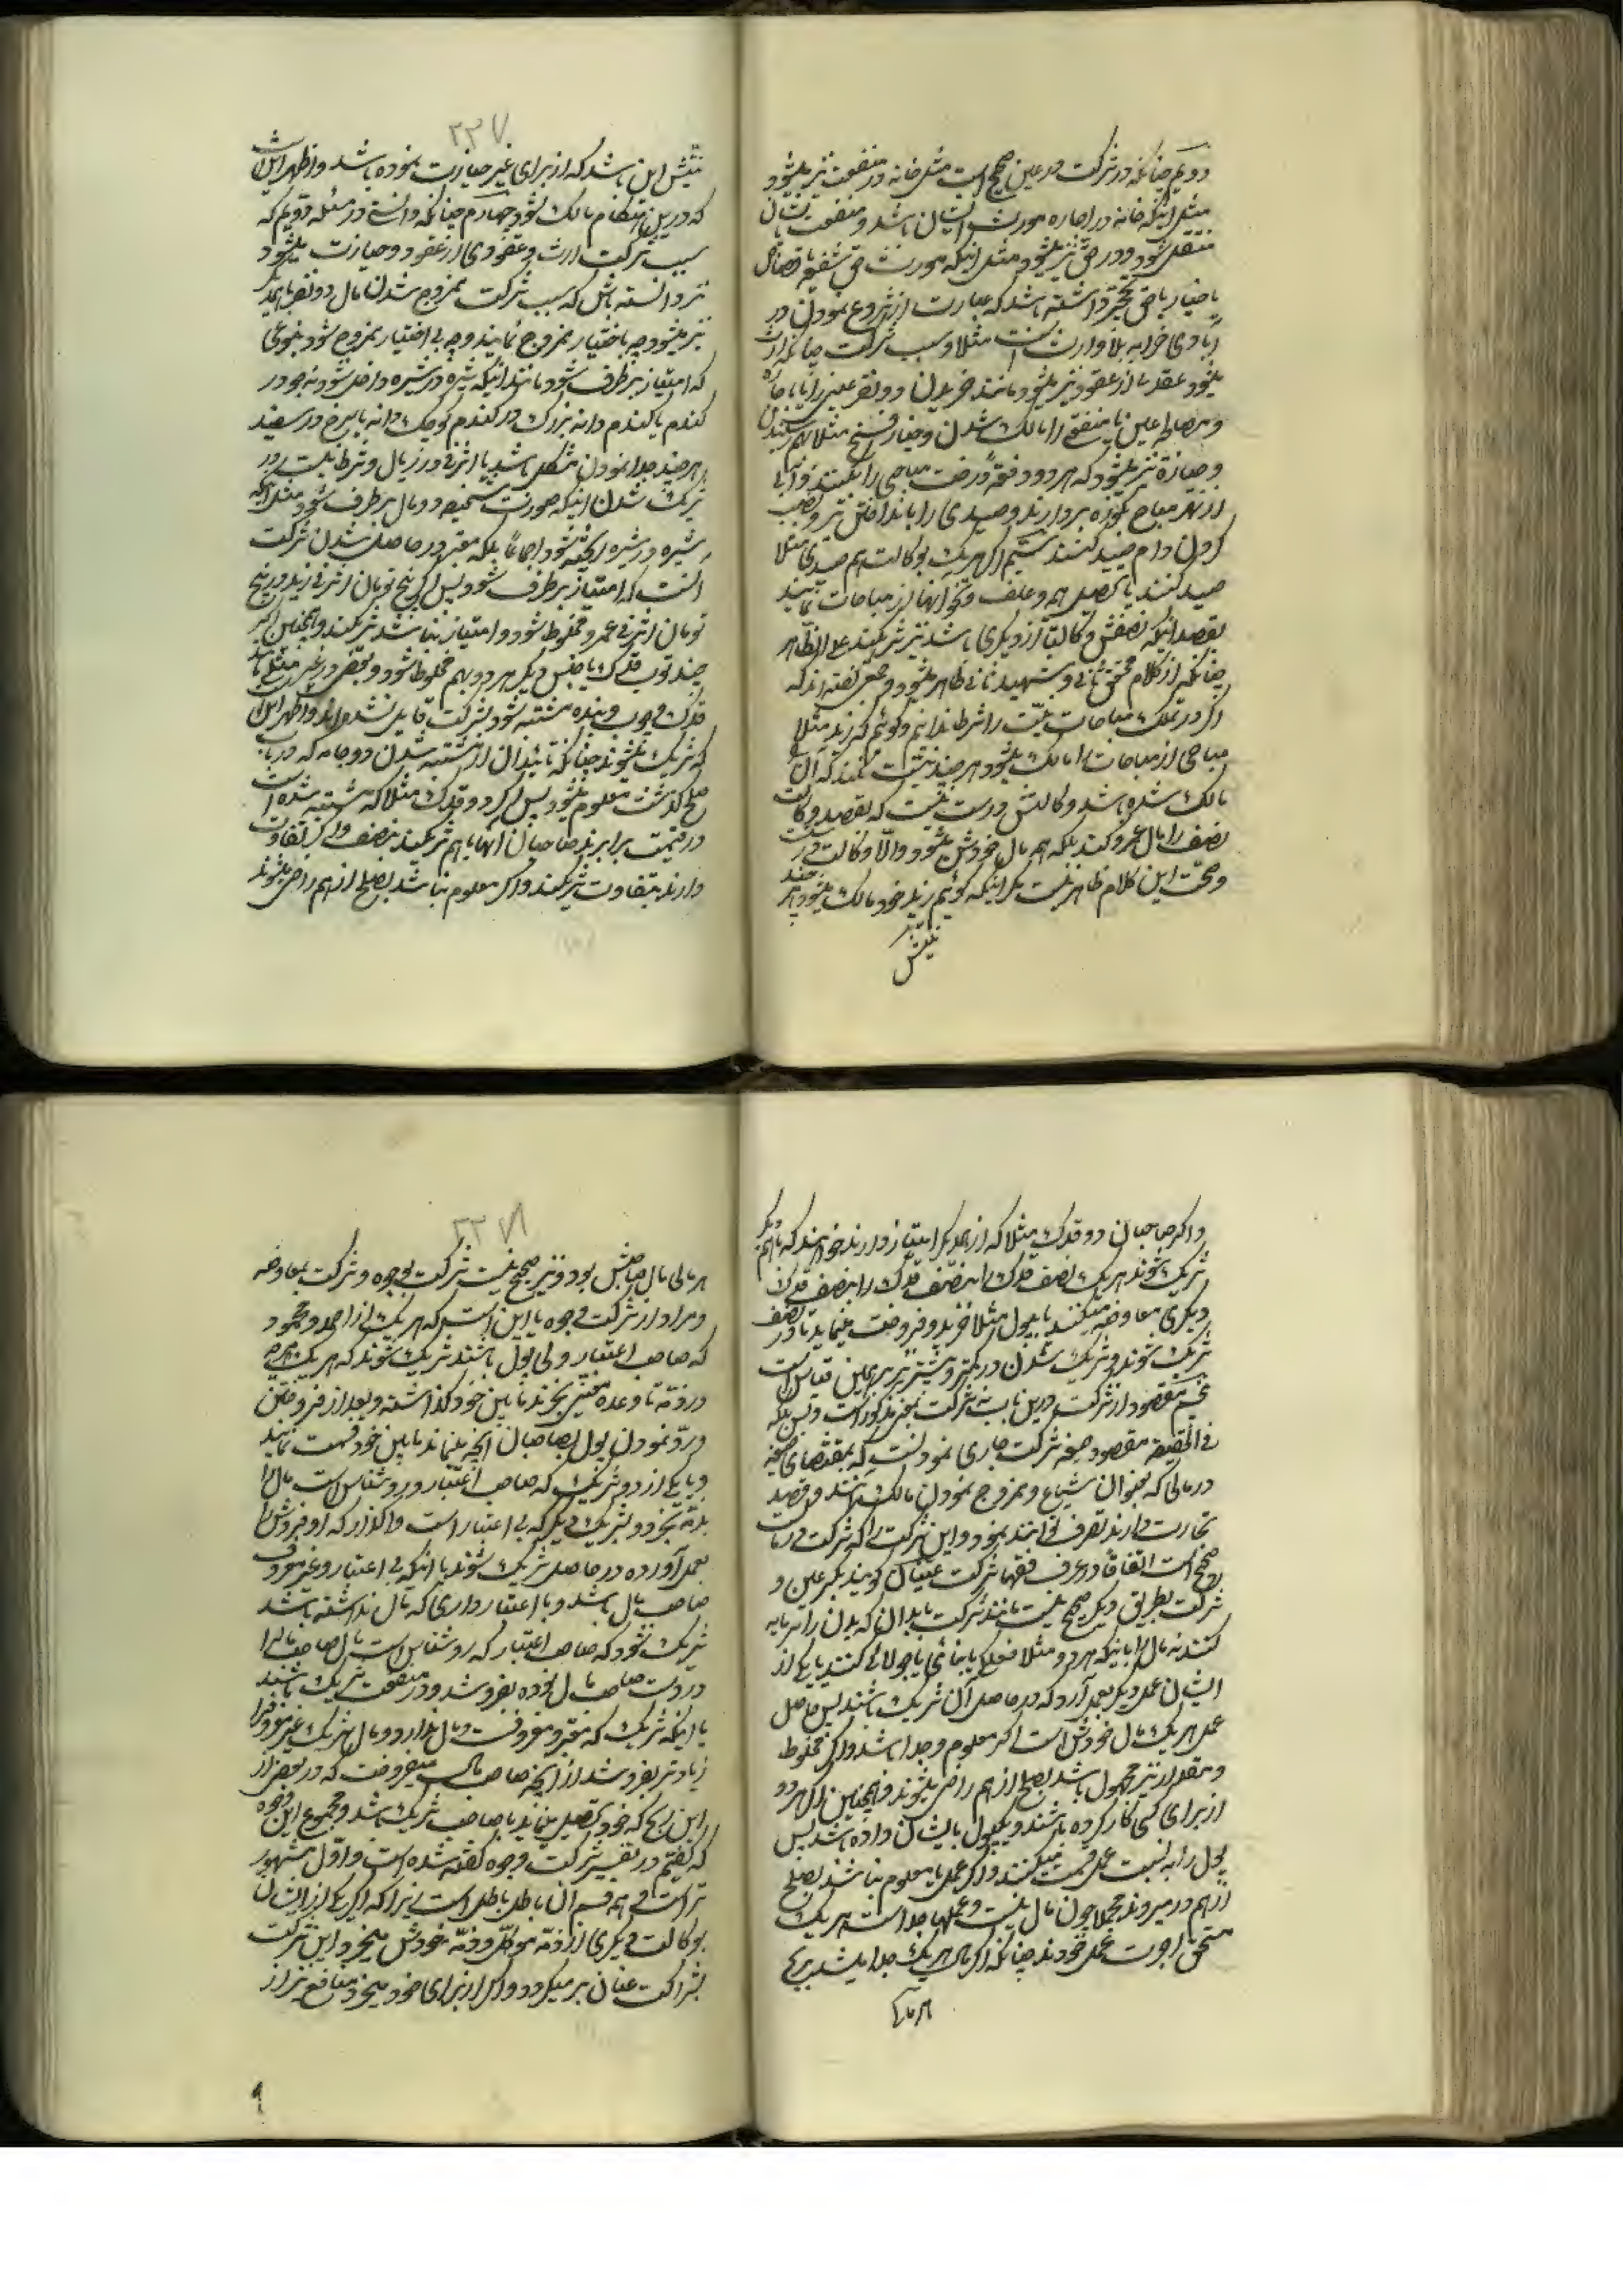 دویم چنانکه در شرکت در عین صحیح است مثل خانه در منفعت نیز میشود
مثل اینکه خانه در اجاره مورث ایشان باشد و منفعت بایشان
منتقل شود و در حق نیز میشود مثل اینکه مورث حق شفعه یا قصاص
یا خیار یا حق تحجیر داشته باشد که عبارت از شروع نمودن در
آبادی خرابه بلا وارث است مثلا و سبب شرکت چنانکه ارث
میشود عقد از عقود نیز میشود مانند خریدن دو نفر عینی را یا باجاره
و مصالحه عین یا منفعتی را مالک شدن و خیار فسخ مثلا بهم رسیدن
و حیازة نیز میشود که هر دو دفعةً درخت مباحی را بکنند و آبی
از نهر مباح بکوزه بردارند و صیدی را بانداختن تیر و نصب
کردن دام صید کنند سیّم اگر هر یک بوکالت هم صیدی مثلا
صید کنند یا تحصیل هیمه و علف و نحو آنها از مباحات نمایند
بقصد اینکه نصفش وکالتاً از دیگری باشد نیز شریکند علی الظاهر
چنانکه از کلام محقق ثانی و شهید ثانی ظاهر میشود و بعضی گفته‌اند که
اگر در تملک مباحات نیّت را شرط ندانیم و گوئیم که زید مثلا
مباحی از مباحات را مالک میشود هر چند نیّت نکند که آن
مالک شده باشد وکالتش درست نیست که بقصد وکالت
نصف را مال عمرو کند بلکه همه مال خودش میشود و الّا وکالت درست
و صحت این کلام ظاهر نیست مگر اینکه گوئیم زید خود مالک میشود هر چند
نیتش
۲۳۷
نیتش این باشد که از برای غیر حیازت نموده باشد و اظهر این است
که در این هنگام مالک نشود چهارم چنانکه دانستی در مسئله دویم که
سبب شرکت ارث و عقدی از عقود و حیازت میشود
نیز دانسته باش که سبب شرکت ممزوج شدن مال دو نفر با هم
نیز میشود چه باختیار ممزوج نمایند و چه بی اختیار ممزوج شود بنوعی
که امتیاز بر طرف شود مانند اینکه شیره در شیره داخل شود نه جو در
گندم یا گندم دانه بزرگ در گندم کوچک دانه یا سرخ در سفید
هر چند جدا نمودن مشکل باشد یا اشرفی در ریال و شرط نیست در
شریک شدن اینکه صورت شخصیه دو مال بر طرف شود مثل اینکه
شیره در شیره ریخته شود اجماعاً بلکه معتبر در حاصل شدن شرکت
آنست که امتیاز بر طرف شود پس اگر پنج تومان اشرفی زید در پنج
تومان اشرفی عمرو مخلوط شود و امتیاز نباشد شریکند و همچنین اگر
چند ثوب قدک با جنس دیگر هر دو بهم مخلوط شود و بعضی در غیر مثلی مانند
قدک و چوب و بنده مشتبه شود بشرکت قایل نشده‌اند و اظهر این است
که شریک نمیشوند چنانکه تأیید آن از مشتبه شدن دو جامه که در باب
صلح گذشت معلوم میشود پس اگر دو قدک مثلا که مشتبه شده است
در قیمت برابرند صاحبان آنها با هم شریکند بنصف و اگر تفاوت
دارند بتفاوت شریکند و اگر معلوم نباشد بصلح از هم راضی میشوند
و اگر صاحبان دو قدک مثلا که از همدیگر امتیاز دارند خواهند که با هم
شریک شوند هر یک نصف قدک را بنصف قدک
دیگری معاوضه میکنند یا بپول مثلا خرید و فروخت مینمایند تا در نصف
شریک شوند و شریک شدن در کمتر و بیشتر نیز بر همین قیاس است
پنجم مقصود از شرکت درین باب نه شرکت بمعنی مذکور است و بس بلکه
فی الحقیقه مقصود صیغه شرکت جاری نمودنست که بمقتضای صیغه
در مالی که بعنوان شیاع و ممزوج نمودن مالک باشند و قصد
تجارت دارند تصرف توانند نمود و این شرکت را که شرکت در مال
صحیح است اتفاقاً در عرف فقها شرکت عنان گویند بکسر عین و
شرکت بطریق دیگر صحیح نیست مانند شرکت بابدان که بدن را سرمایه
کنند نه مال را باینکه هر دو مثلا فعلگی یا بنائی یا جولائی کنند یا یکی از
ایشان عمل دیگر بعمل آرد که در حاصل آن شریک باشند پس حاصل
عمل هر یک مال خودش است اگر معلوم و جدا باشد و اگر مخلوط
و مقدار نیز مجهول باشد بصلح از هم راضی میشوند و همچنین اگر هر دو
از برای کسی کار کرده باشند و یکپول بایشان داده باشد پس
پول را به نسبت عمل قسمت میکنند و اگر عملها معلوم نباشند بصلح
از هم در میروند مجملا چون مال نیست و عملها جداست هر یک
مستحق اجرت عمل خودند چنانکه اگر مال هر یک جدا باشد بربح
هر مالی
۲۳۸
هر مالی مال صاحبش بود و نیز صحیح نیست شرکت بوجوه و شرکت بمعاوضه
و مراد از شرکت وجوه یا این است که هر یک از احمد و محمود
که صاحب اعتبار و بی پول باشند شریک شوند که هر یک هر چه
در ذمّه تا وعده معیّن بخرند مابین خود گذاشته و بعد از فروختن
و ردّ نمودن پول بصاحبان آنچه بماند مابین خود قسمت نمایند
و یا یکی از دو شریک که صاحب اعتبار و روشناس است مال را
بذمّه بخرد و بشریک دیگر که بی اعتبار است واگذارد که او فروش را
بعمل آورده در حاصل شریک شوند یا اینکه بی اعتبار و غیر معروف
صاحب مال باشد و با اعتبار داری که مال نداشته باشد
شریک شود که صاحب اعتبار که روشناس است مال صاحب مال را
در دست صاحب مال بوده بفروشد و در منفعت شریک باشند
یا اینکه شریک که معتبر و معروفست و مال ندارد و مال شریک غیر معروف را
زیادتر بفروشد از آنچه صاحب مال میفروخت که در بعضی از
این ربح که خود تحصیل مینماید با صاحب شریک باشد و مجموع این وجوه
که گفتیم در تفسیر شرکت وجوه گفته شده است و اوّل مشهور
تر است و همه قسم آن باطل باطل است زیرا که اگر یکی از ایشان
بوکالت دیگری از ذمّه موکّل و ذمّه خودش میخرد این شرکت
بشراکت عنان بر میگردد و اگر از برای خود میخرد منافع نیز از
۹